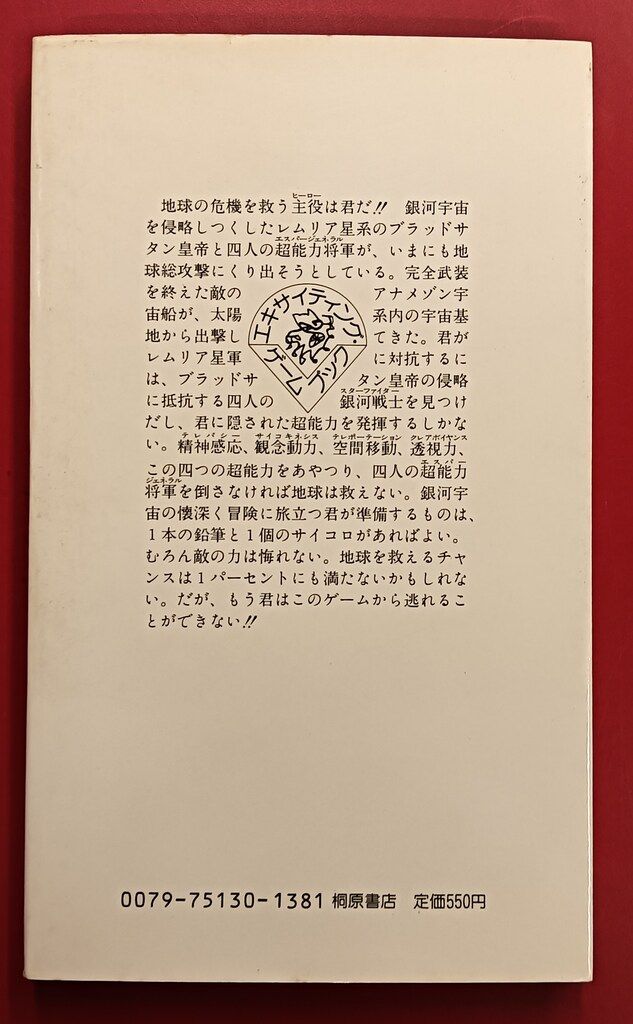 地球の危機を救う主役は君だ!! 銀河宇宙
ヒーロー
を侵略しつくしたレムリア星系のブラッドサ
タン皇帝と四人の超能力将軍が、いまにも地
エスパージェネラル
球総攻撃にくり出そうとしている。完全武装
を終えた敵の アナメゾン宇
宙船が、太陽 系内の宇宙基
地から出撃し てきた。君が
レムリア星軍 に対抗するに
は、ブラッドサ タン皇帝の侵略
に抵抗する四人の 銀河戦士を見つけ
スターファイター
エキサイティング・
ゲームブック
だし、君に隠された超能力を発揮するしかな
い。精神感応、観念動力、空間移動、透視力、
テレパシー サイコキネシス テレポーテーション クレアボイヤンス
この四つの超能力をあやつり、四人の超能力
エスパー
将軍を倒さなければ地球は救えない。銀河宇
ジェネラル
宙の懐深く冒険に旅立つ君が準備するものは、
1本の鉛筆と1個のサイコロがあればよい。
むろん敵の力は侮れない。地球を救えるチャ
ンスは1パーセントにも満たないかもしれな
い。だが、もう君はこのゲームから逃れるこ
とができない!!
0079-75130-1381 桐原書店 定価550円